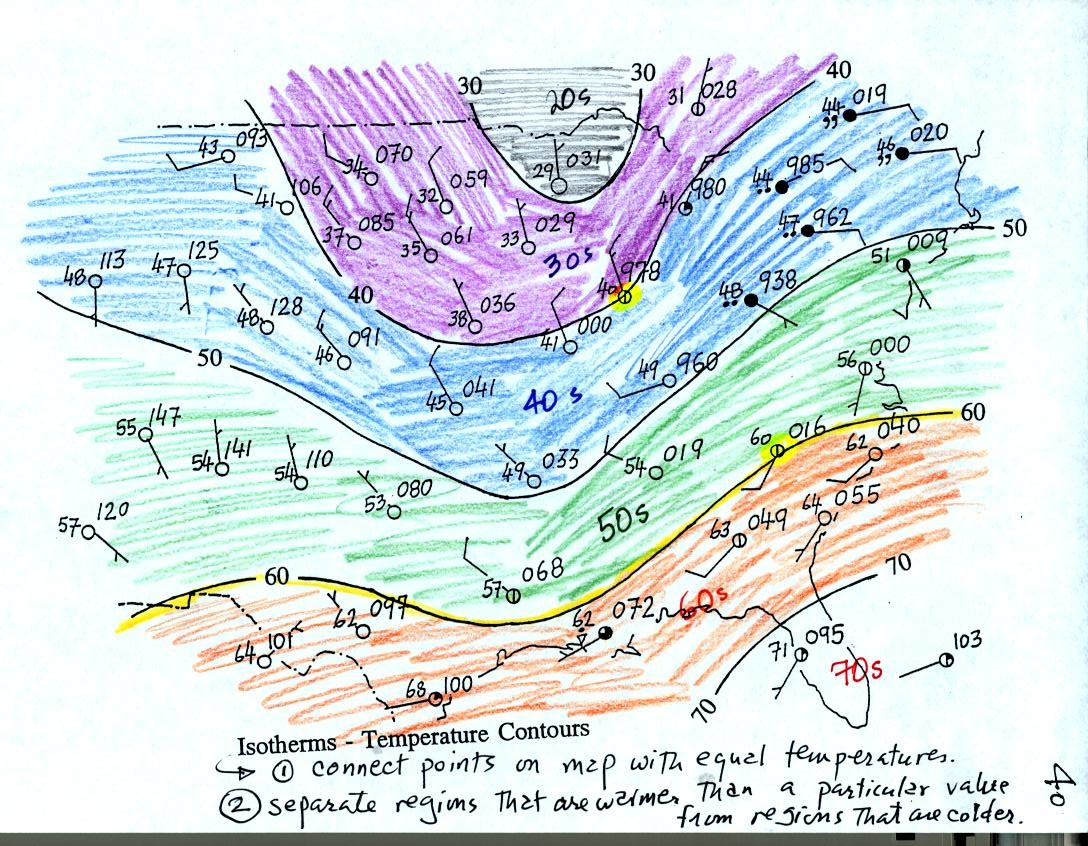 30 30 40
31 028
20s
44 019
43 093
34 070
29 031
46 020
44 985
41 106
32 059
41 980
37 085
35 061
33 029
47 962
50
30s
48 113
47 125
40 978
51 009
40
48 128
38 036
48 938
46 091
41 000
50
49 960
56 000
45 041
40s
55 147
60
54 141
54 110
49 033
54 019
60 016
62 040
53 080
57 120
50s
64 055
63 049
60
57 068
70
62 097
62 072
60s
64 101
71 095
70s
103
68 100
70
Isotherms - Temperature Contours
① connect points on map with equal temperatures.
② separate regins that are warmer than a particular value
from regions that are colder.
40